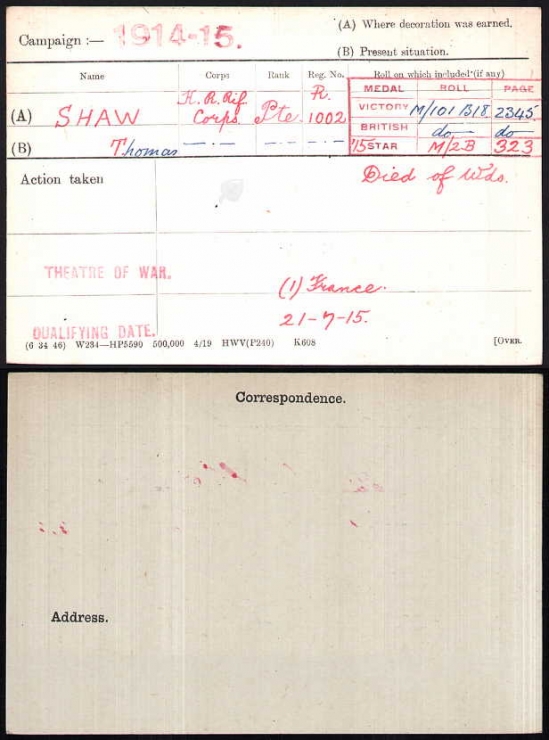 (A) Where decoration was earned.
Campaign :— 1914-15.
(B) Present situation.
Name Corps Rank Reg. No. Roll on which included (if any)
MEDAL ROLL PAGE
K. R. Rif R.
VICTORY M/101 B18 2345
(A) SHAW Corps. Pte 1002
BRITISH do do
(B) Thomas —·— —·— —·—
'15 STAR M/2B 323
Action taken
Died of Wds.
THEATRE OF WAR.
(1) France.
21-7-15.
QUALIFYING DATE.
(6 34 46) W234—HP5590 500,000 4/19 HWV(P240) K608 [OVER.
Correspondence.
Address.